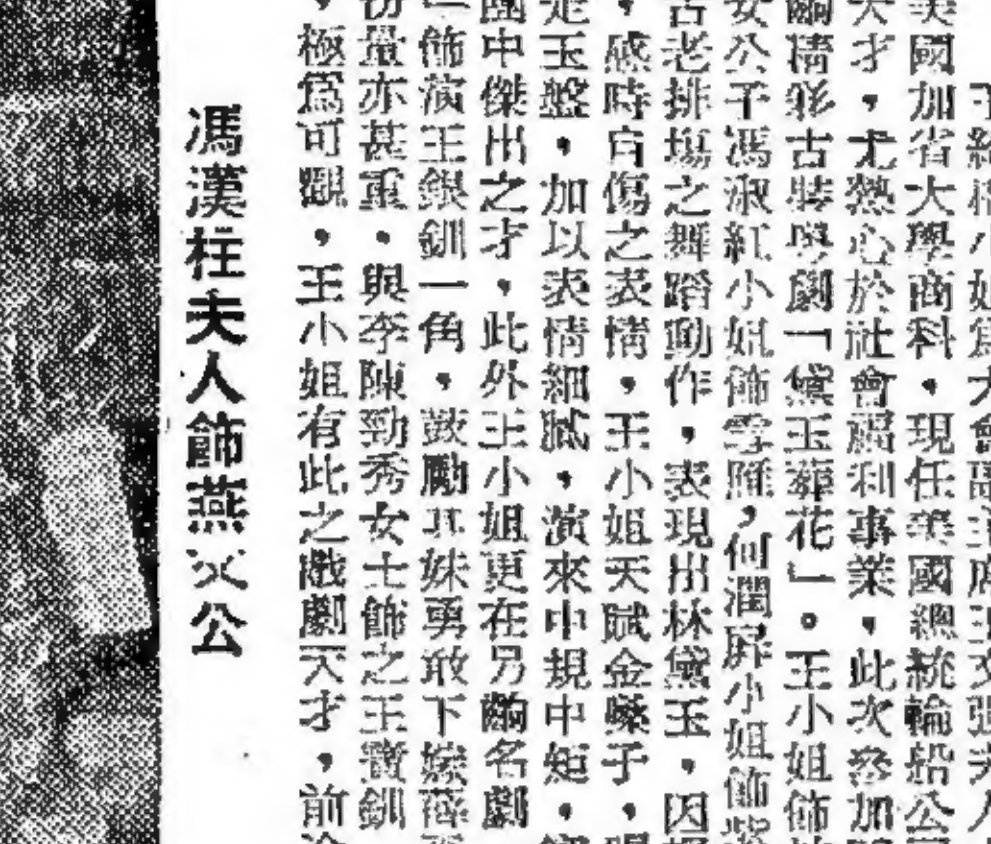 小姐為大會副主席王文強夫人
美國加省大學商科，現任美國總統輪船公
天才，尤熱心於社會福利事業，此次參加
齣精彩古裝粵劇「黛玉葬花」。王小姐飾
女公子馮淑紅小姐飾雪雁，何潤屏小姐飾紫
古老排場之舞蹈動作，表現出林黛玉，因
，感時自傷之表情，王小姐天賦金嗓子，
走玉盤，加以表情細膩，演來中規中矩，
團中傑出之才，此外王小姐更在另齣名劇
飾演王銀釧一角，鼓勵其妹勇敢下嫁薛
份量亦甚重，與李陳勁秀女士飾之王寶釧
，極為可觀，王小姐有此之戲劇天才，前
馮漢柱夫人飾燕父公